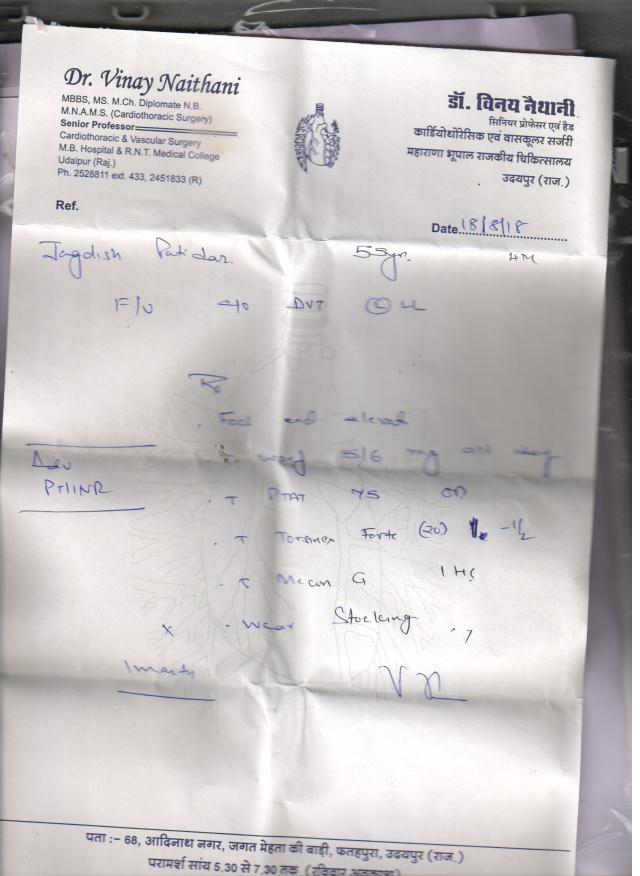 Dr. Vinay Naithani
MBBS, MS. M.Ch. Diplomate N.B.
M.N.A.M.S. (Cardiothoracic Surgery)
Senior Professor
Cardiothoracic & Vascular Surgery
M.B. Hospital & R.N.T. Medical College
Udaipur (Raj.)
Ph. 2528811 ext. 433, 2451833 (R)
डॉ. विनय नैथानी
सिनियर प्रोफेसर एवं हैड
कार्डियोथोरेसिक एवं वासकूलर सर्जरी
महाराणा भूपाल राजकीय चिकित्सालय
उदयपुर (राज.)
Ref.
Date 18/8/18
Jagdish Patidar 55yr.
F/U c/o DVT Ⓛ LL
Rx
Foot end elevat
Adv
PT/INR
warf 5/6 mg alt day
T PTAT 75 OD
T Forte (20) - 1/2
T G 1 HS
x Wear Stocking
1 month
पता :- 68, आदिनाथ नगर, जगत मेहता की बाड़ी, फतहपुरा, उदयपुर (राज.)
परामर्श सांय 5.30 से 7.30 तक (रविवार अवकाश)